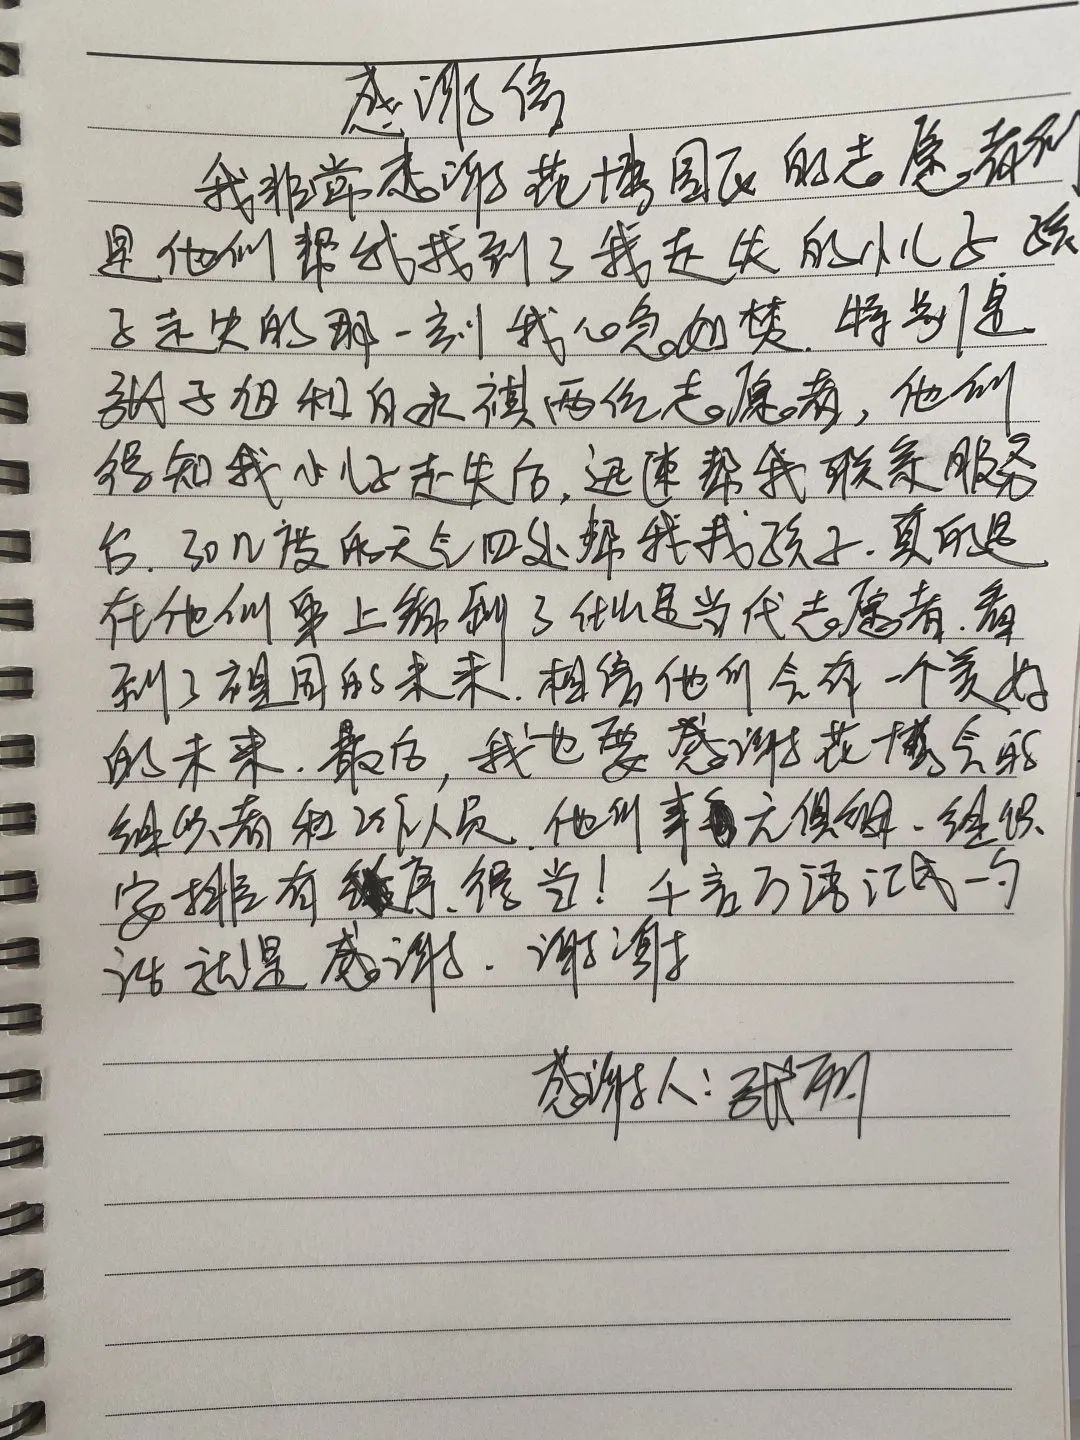 感谢信
我非常感谢花博园区的志愿者们
是他们帮我找到了我走失的小儿子 孩
子走失的那一刻我心急如焚.特别是
张子旭和白永祺两位志愿者,他们
得知我小儿子走失后,迅速帮我联系服务
台.30几度的天气四处帮我找孩子.真的是
在他们身上看到了什么是当代志愿者.看
到了祖国的未来.相信他们会有一个美好
的未来.最后,我也要感谢花博会的
组织者和工作人员.他们事无俱细.组织
安排有序.得当!千言万语汇成一句
话就是感谢.谢谢
感谢人:张